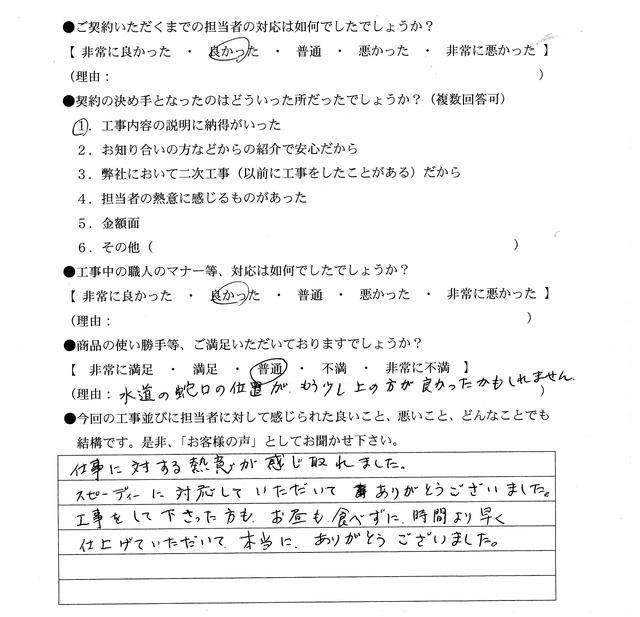 ●ご契約いただくまでの担当者の対応は如何でしたでしょうか？
【 非常に良かった ・ 良かった ・ 普通 ・ 悪かった ・ 非常に悪かった 】
（理由： ）
●契約の決め手となったのはどういった所だったでしょうか？（複数回答可）
１．工事内容の説明に納得がいった
２．お知り合いの方などからの紹介で安心だから
３．弊社において二次工事（以前に工事をしたことがある）だから
４．担当者の熱意に感じるものがあった
５．金額面
６．その他（ ）
●工事中の職人のマナー等、対応は如何でしたでしょうか？
【 非常に良かった ・ 良かった ・ 普通 ・ 悪かった ・ 非常に悪かった 】
（理由： ）
●商品の使い勝手等、ご満足いただいておりますでしょうか？
【 非常に満足 ・ 満足 ・ 普通 ・ 不満 ・ 非常に不満 】
（理由：水道の蛇口の位置が、もう少し上の方が良かったかもしれません ）
●今回の工事並びに担当者に対して感じられた良いこと、悪いこと、どんなことでも
結構です。是非、「お客様の声」としてお聞かせ下さい。
仕事に対する熱意が感じ取れました。
スピーディーに対応していただいて ありがとうございました。
工事をして下さった方も、お昼も食べずに、時間より早く
仕上げていただいて、本当に、ありがとうございました。